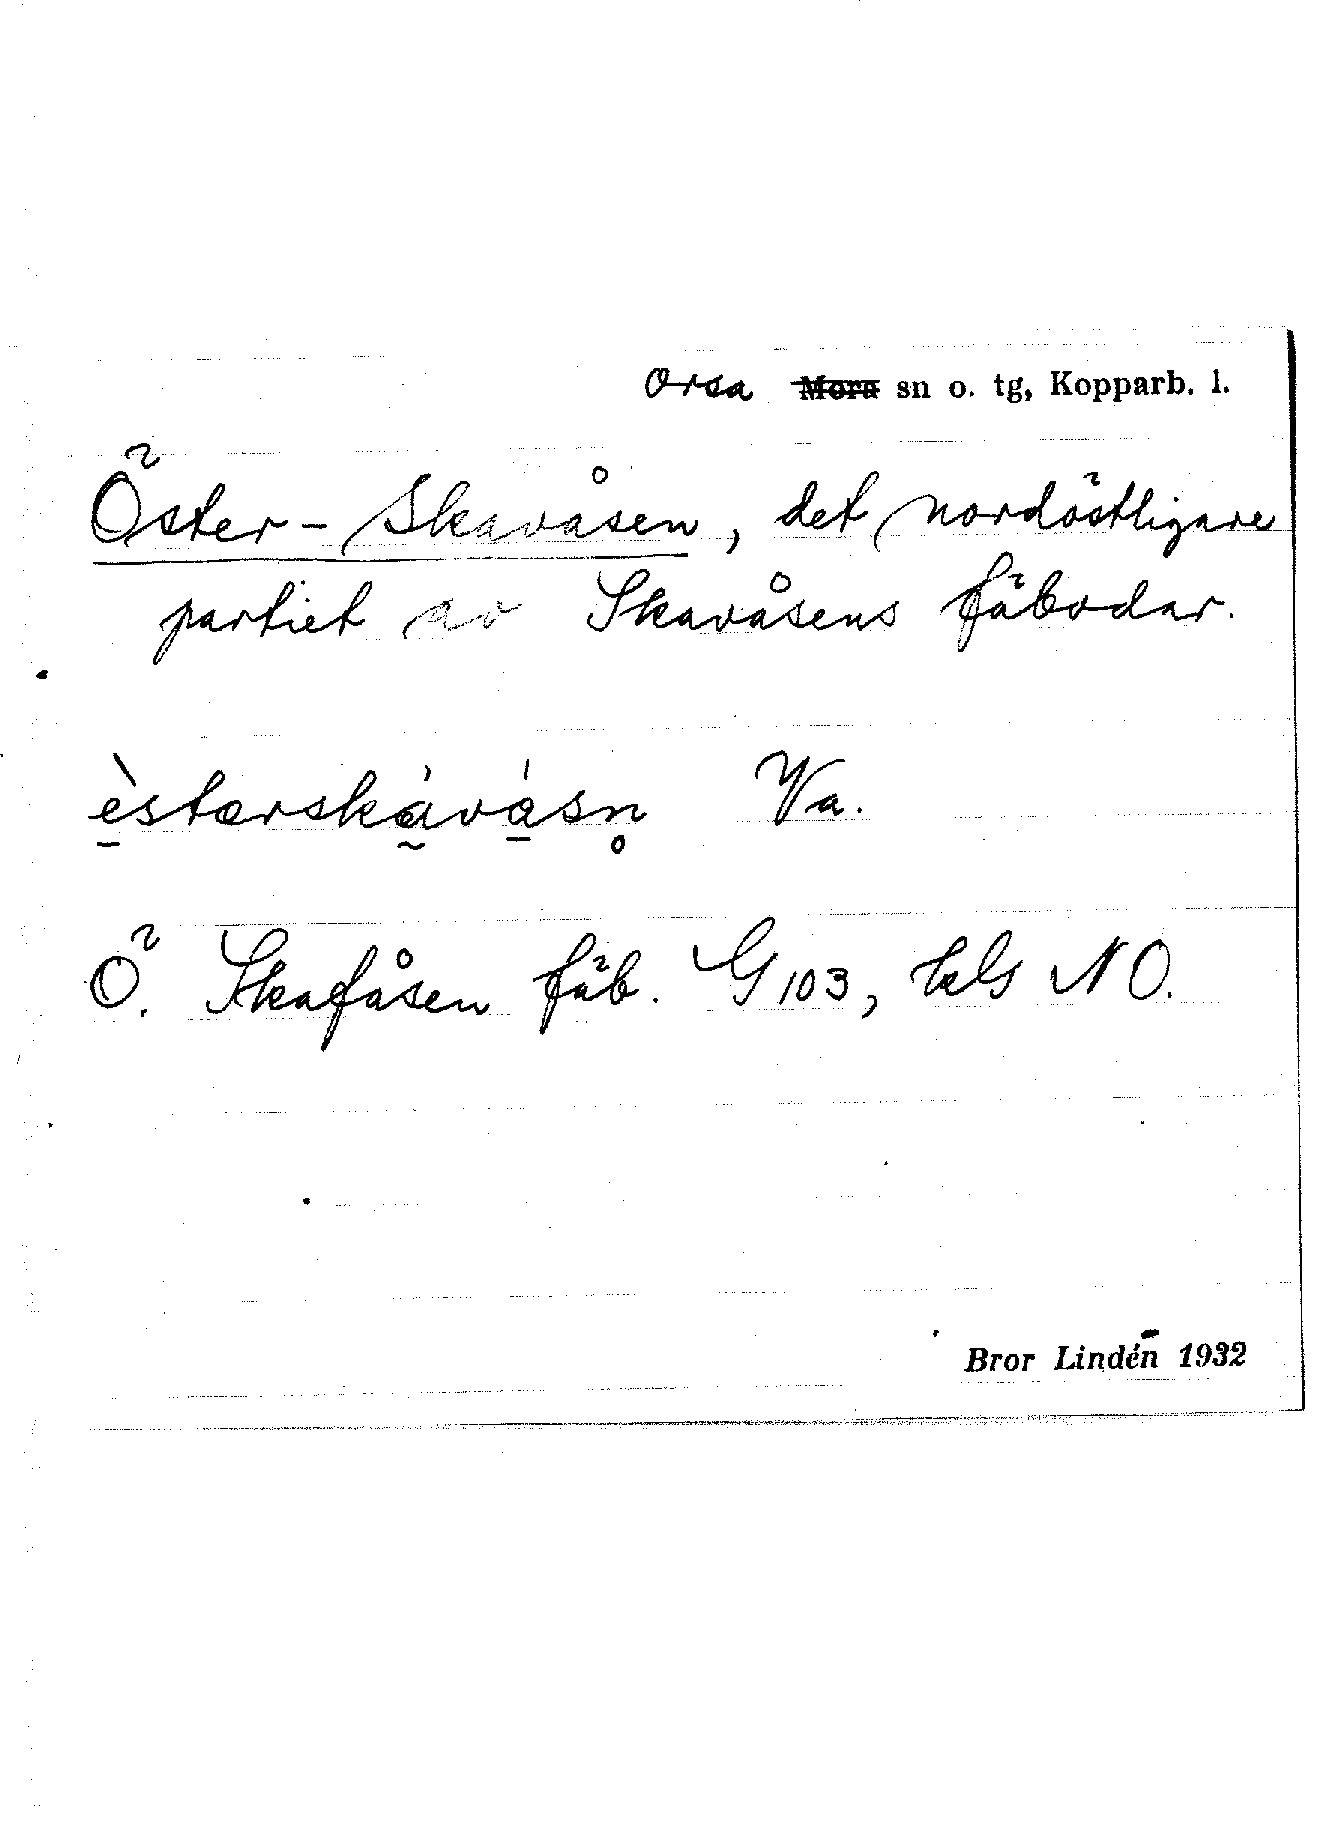 Orsa ~~Mora~~ sn o. tg, Kopparb. l.
Öster-Skavåsen, det nordöstligare
partiet av Skavåsens fäbodar.
è̱stærskà̰vá̱sn̥ Va.
Ö. Skafåsen fäb. G 103, NO.
Bror Lindén 1932